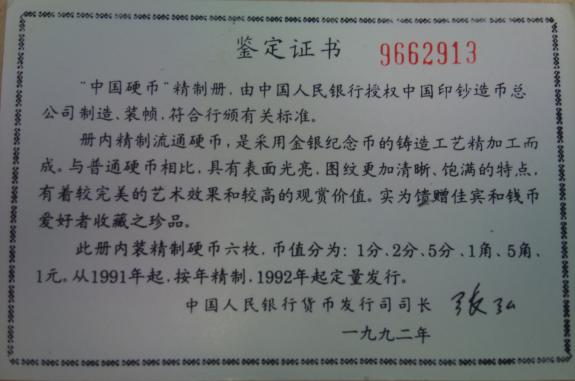 鉴定证书 9662913
“中国硬币”精制册，由中国人民银行授权中国印钞造币总
公司制造、装帧，符合行颁有关标准。
册内精制流通硬币，是采用金银纪念币的铸造工艺精加工而
成。与普通硬币相比，具有表面光亮，图纹更加清晰、饱满的特点，
有着较完美的艺术效果和较高的观赏价值。实为馈赠佳宾和钱币
爱好者收藏之珍品。
此册内装精制硬币六枚，币值分为：1分、2分、5分、1角、5角、
1元。从1991年起，按年精制，1992年起定量发行。
中国人民银行货币发行司司长 张弘
一九九二年